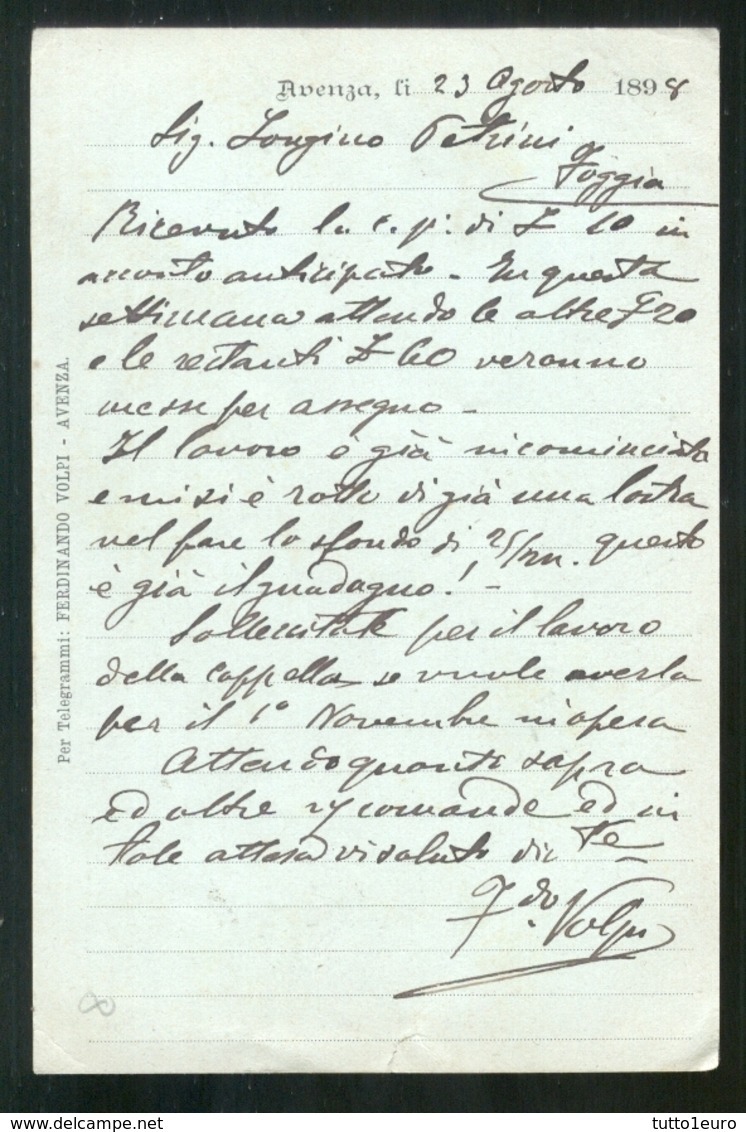 Avenza, li 23 Agosto 1898
Sig. Longino Petrini
Foggia
Ricevuto la c. p. di £ 10 in
acconto anticipato - In questa
settimana attendo le altre £ 20
e le restanti £ 60 veranno
messe per assegno -
Il lavoro è già rincominciato
e mi si è rotto di già una lastra
nel fare lo sfondo di questo
è già il guadagno! -
Sollecitate per il lavoro
della cappella se vuole averla
per il 1° Novembre in opera
Attendo quanto sopra
ed altre comande ed in
tale attesa vi saluto di
F.do Volpi
Per Telegrammi: FERDINANDO VOLPI - AVENZA.
8
tutto1euro